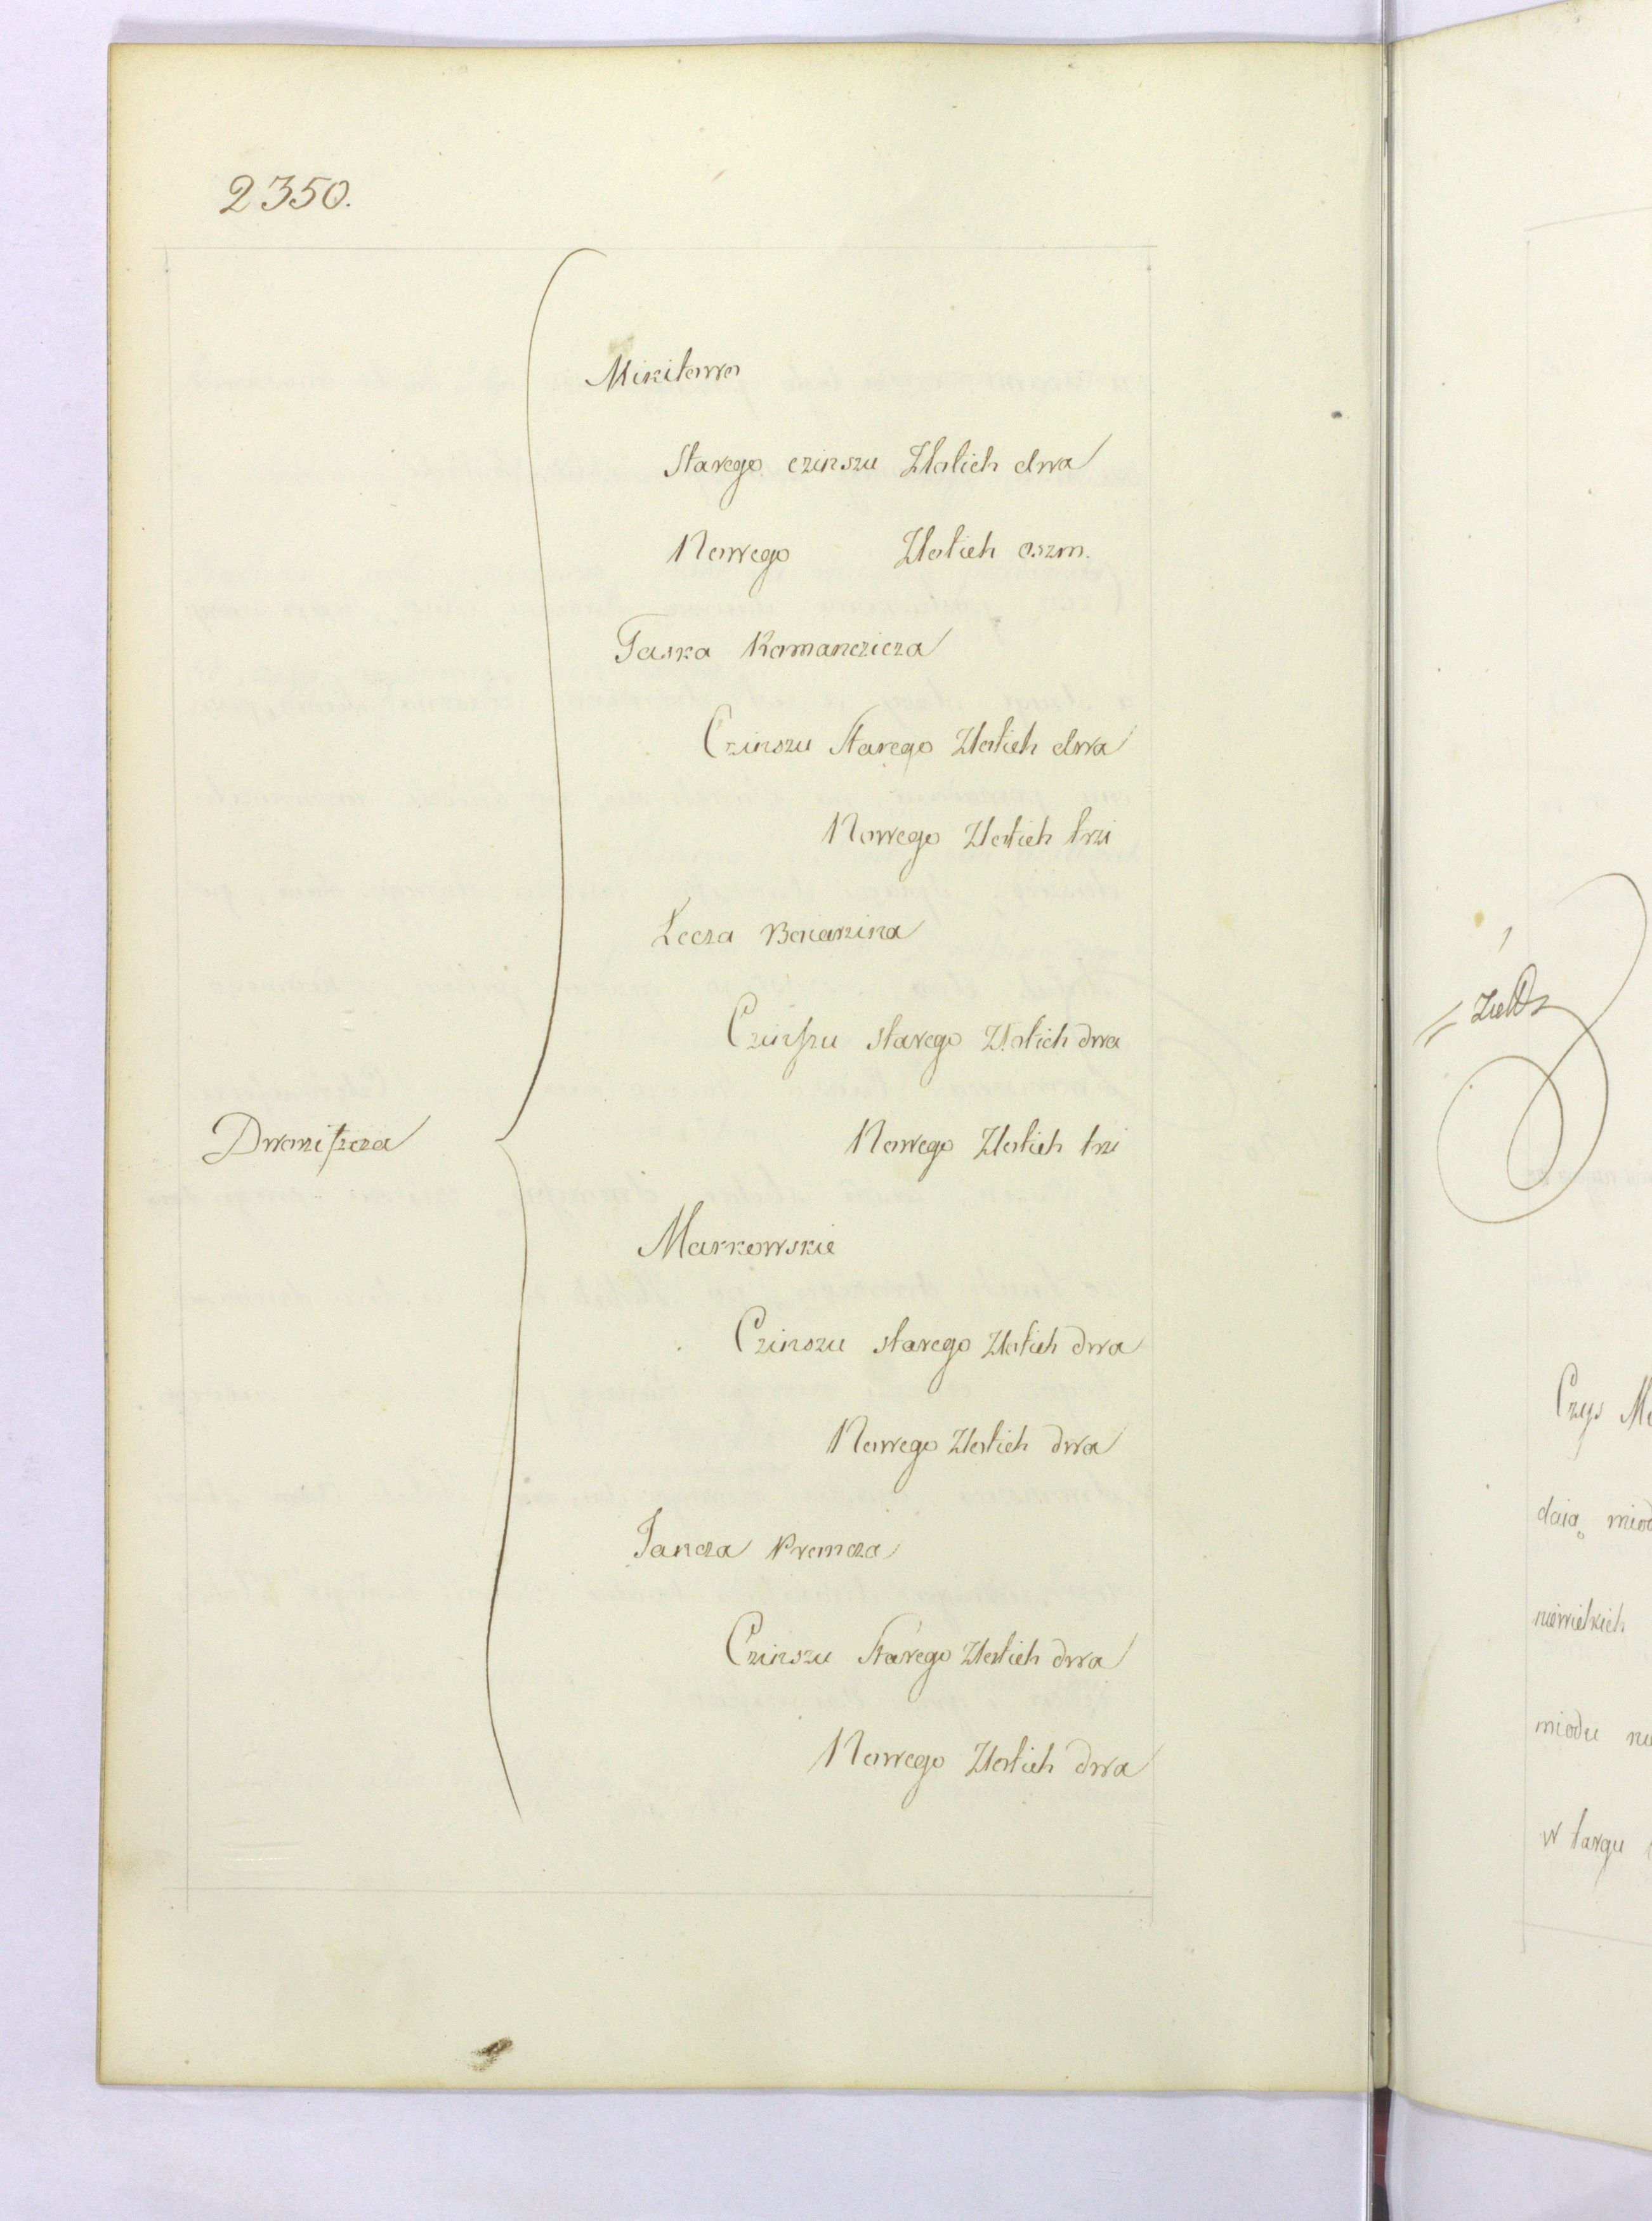 2350.
Mikitowa
Starego czinszu Zlotich dwa
Nowego Zlotich oszm.
Taska Romanczicza
Czinszu Starego Zlotich dwa
Nowego Zlotich trzi
Lecza Boiarzina
Czinſzu starego Zlotich dwa
Dworziſzcza
Nowego Zlotich trzi
Markowskie
Czinszu starego Zlotich dwa
Nowego Zlotich dwa
Jancza Kremcza
Czinszu Starego Zlotich dwa
Nowego Zlotich dwa
daią miod
niewielkich
miodu
w targu